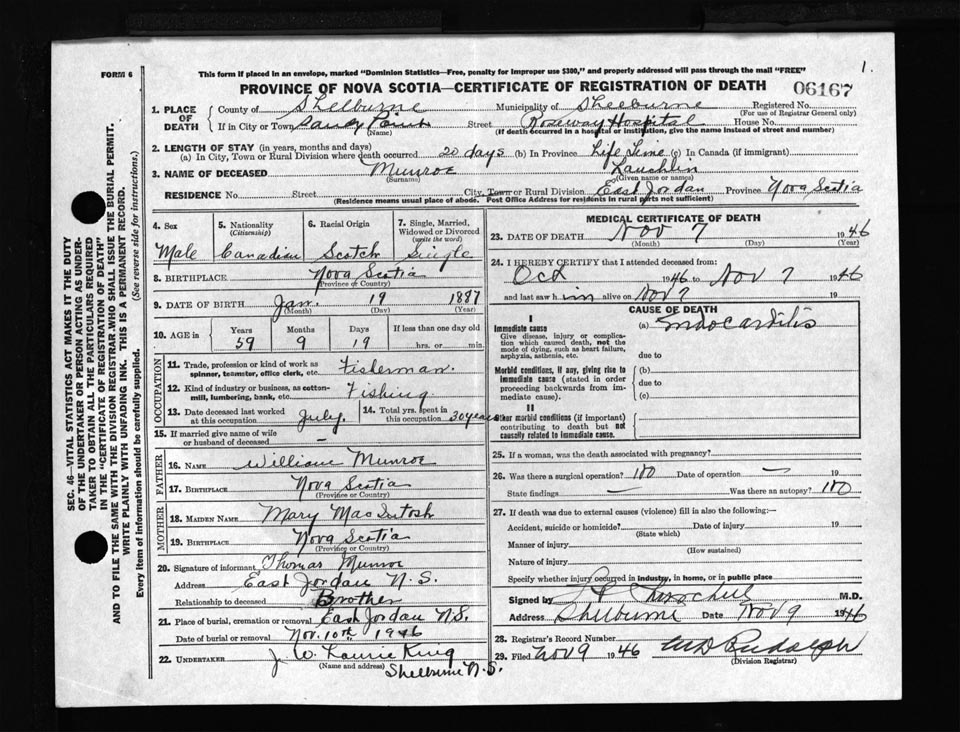 FORM 6
This form if placed in an envelope, marked "Dominion Statistics—Free, penalty for improper use $300," and properly addressed will pass through the mail "FREE"
1.
PROVINCE OF NOVA SCOTIA—CERTIFICATE OF REGISTRATION OF DEATH
06167
SEC. 46—VITAL STATISTICS ACT MAKES IT THE DUTY
OF THE UNDERTAKER OR PERSON ACTING AS UNDER-
TAKER TO OBTAIN ALL THE PARTICULARS REQUIRED
IN THE "CERTIFICATE OF REGISTRATION OF DEATH"
AND TO FILE THE SAME WITH THE DIVISION REGISTRAR WHO SHALL ISSUE THE BURIAL PERMIT.
WRITE PLAINLY WITH UNFADING INK. THIS IS A PERMANENT RECORD.
Every item of information should be carefully supplied. (See reverse side for instructions).
1. PLACE OF DEATH County of Shelburne Municipality of Shelburne Registered No.
(For use of Registrar General only)
If in City or Town Sandy Point Street Roseway Hospital House No.
(Name) (If death occurred in a hospital or institution, give the name instead of street and number)
2. LENGTH OF STAY (in years, months and days)
(a) In City, Town or Rural Division where death occurred 20 days (b) In Province Life Time (c) In Canada (if immigrant)
3. NAME OF DECEASED Munroe Lauchlin
(Surname) (Given name or names)
RESIDENCE No. Street City, Town or Rural Division East Jordan Province Nova Scotia
(Residence means usual place of abode. Post Office Address for residents in rural parts not sufficient)
4. Sex 5. Nationality (Citizenship) 6. Racial Origin 7. Single, Married, Widowed or Divorced (write the word)
Male Canadian Scotch Single
8. BIRTHPLACE Nova Scotia
(Province or Country)
9. DATE OF BIRTH Jan. 19 1887
(Month) (Day) (Year)
10. AGE in Years Months Days If less than one day old
59 9 19 hrs. or min.
OCCUPATION
11. Trade, profession or kind of work as spinner, teamster, office clerk, etc. Fisherman.
12. Kind of industry or business, as cotton-mill, lumbering, bank, etc. Fishing
13. Date deceased last worked at this occupation July. 14. Total yrs. spent in this occupation 30 years
15. If married give name of wife or husband of deceased —
FATHER
16. NAME William Munroe
17. BIRTHPLACE Nova Scotia
(Province or Country)
MOTHER
18. MAIDEN NAME Mary MacIntosh
19. BIRTHPLACE Nova Scotia
(Province or Country)
20. Signature of informant Thomas Munroe
Address East Jordan N.S.
Relationship to deceased Brother
21. Place of burial, cremation or removal East Jordan N.S.
Date of burial or removal Nov. 10th 1946
22. UNDERTAKER J. W. Laurie King
(Name and address) Shelburne N.S.
MEDICAL CERTIFICATE OF DEATH
23. DATE OF DEATH Nov 7 1946
(Month) (Day) (Year)
24. I HEREBY CERTIFY that I attended deceased from:
Oct 1946 to Nov 7 1946
and last saw him alive on Nov 7 19
CAUSE OF DEATH
I
Immediate cause (a) Endocarditis
Give disease, injury or complication which caused death, not the mode of dying, such as heart failure, asphyxia, asthenia, etc.
due to
Morbid conditions, if any, giving rise to immediate cause (stated in order proceeding backwards from immediate cause).
(b)
due to
(c)
II
Other morbid conditions (if important) contributing to death but not causally related to immediate cause.
25. If a woman, was the death associated with pregnancy?
26. Was there a surgical operation? no Date of operation — 19
State findings — Was there an autopsy? no
27. If death was due to external causes (violence) fill in also the following:—
Accident, suicide or homicide? Date of injury 19
(State which)
Manner of injury
(How sustained)
Nature of injury
Specify whether injury occurred in industry, in home, or in public place
Signed by M.D.
Address Shelburne Date Nov 9 1946
28. Registrar's Record Number
29. Filed Nov 9 1946 Rudolph
(Division Registrar)